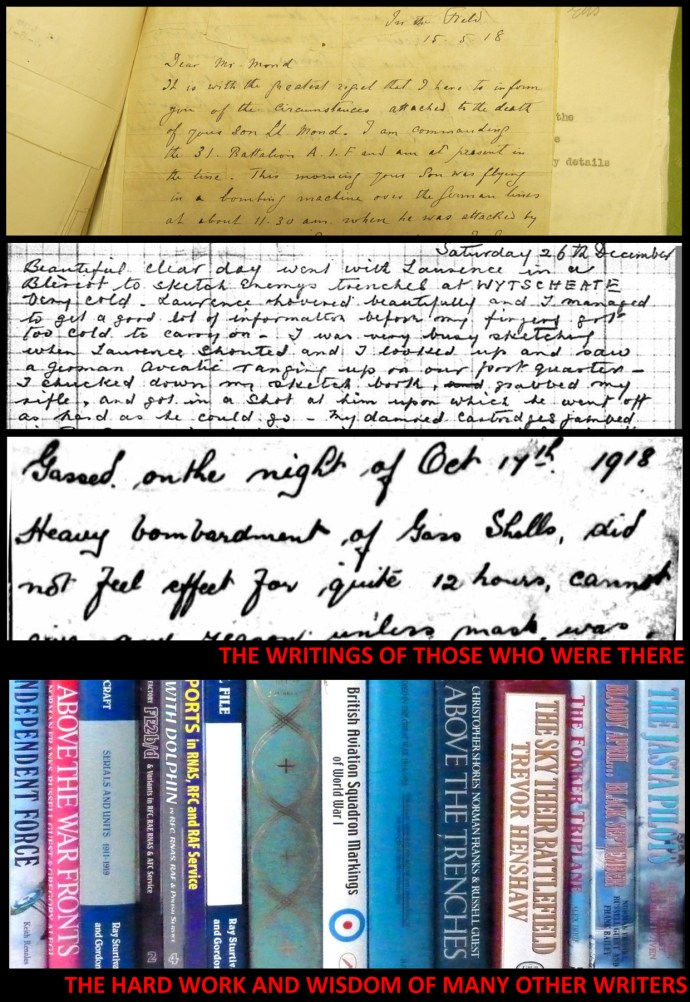 In the Field
15. 5. 18
Dear Mr Mond
It is with the greatest regret that I have to inform
you of the circumstances attached to the death
of your son Lt Mond. I am commanding
the 31. Battalion A.I.F and am at present in
the line. This morning your Son was flying
in a bombing machine over the German lines
at about 11.30 am. when he was attacked by
the
y details
Saturday 26th December
Beautiful clear day went with Laurence in a
Bleriot to sketch Enemys trenches at WYTSCHEATE
Very cold. Laurence hovered beautifully and I managed
to get a good lot of information before my fingers got
too cold to carry on - I was very busy sketching
when Laurence shouted and I looked up and saw
a german Aviatic ranging up on our port quarter -
I chucked down my sketch book, and grabbed my
rifle, and got in a shot at him upon which he went off
as hard as he could go - My damned cartridges jambed
Gassed on the night of Oct 17th 1918
Heavy bombardment of Gass Shells, did
not feel effect for quite 12 hours, cannot
give any reason unless mask was
THE WRITINGS OF THOSE WHO WERE THERE
INDEPENDENT FORCE
Keith Rennles
ABOVE THE WAR FRONTS
NORMAN FRANKS RUSSELL GUEST & GREGORY ALEGI
CRAFT
SERIALS AND UNITS 1911-1919
Ray Sturtiv
and Gordon
FACTORY FE2b/d & Variants in RFC, RAF, RNAS & AFC Service
2
WITH DOLPHIN in RFC, RNAS, RAF & Polish Service
4
PORTS in RNAS, RFC and RAF Service
FILE
Ray Sturtiv
and Gordo
British Aviation Squadron Markings
of World War I
CHRISTOPHER SHORES NORMAN FRANKS & RUSSELL GUEST
ABOVE THE TRENCHES
THE SKY THEIR BATTLEFIELD
TREVOR HENSHAW
THE FOKKER TRIPLANE
ALEX IMRIE
BLOODY APRIL... BLACK SEPTEMBER
NORMAN FRANKS
RUSSELL GUEST AND
FRANK BAILEY
THE JASTA PILOTS
THE HARD WORK AND WISDOM OF MANY OTHER WRITERS